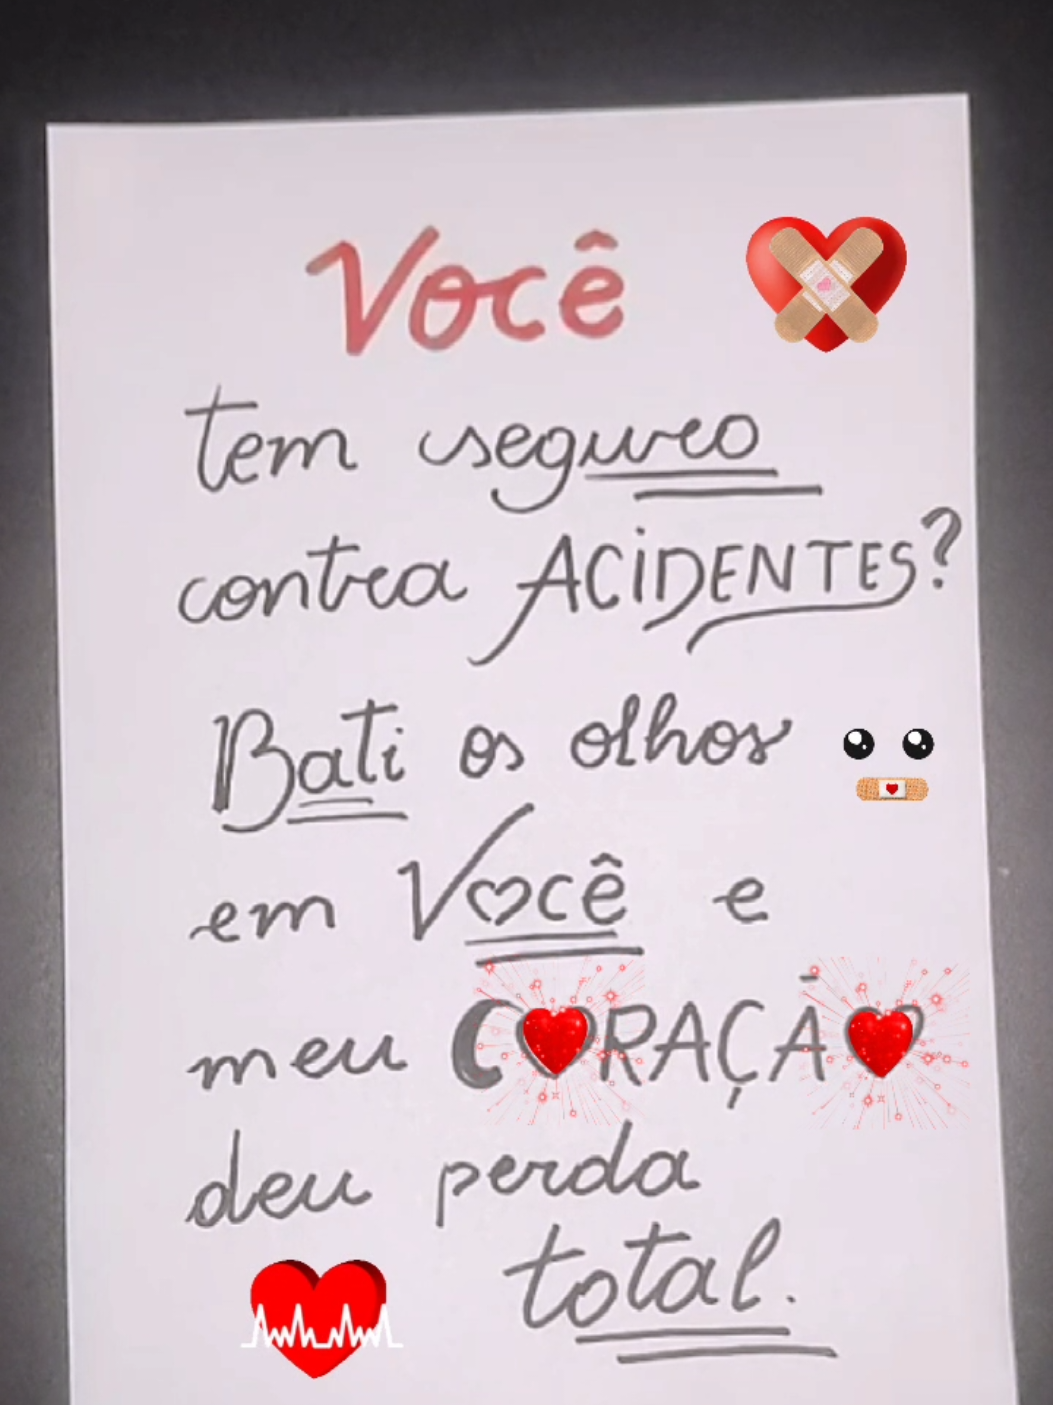 Você
tem seguro
contra ACIDENTES?
Bati os olhos
em Você e
meu CORAÇÃO
deu perda
total.